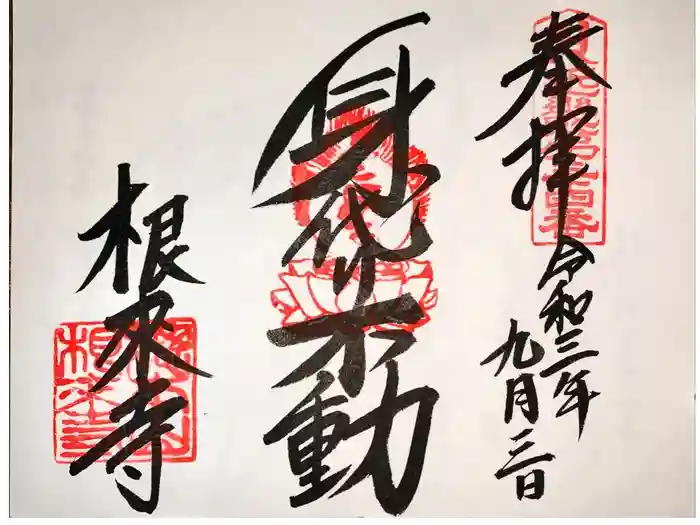 奉拝
令和三年
九月三日
身代不動
根来寺